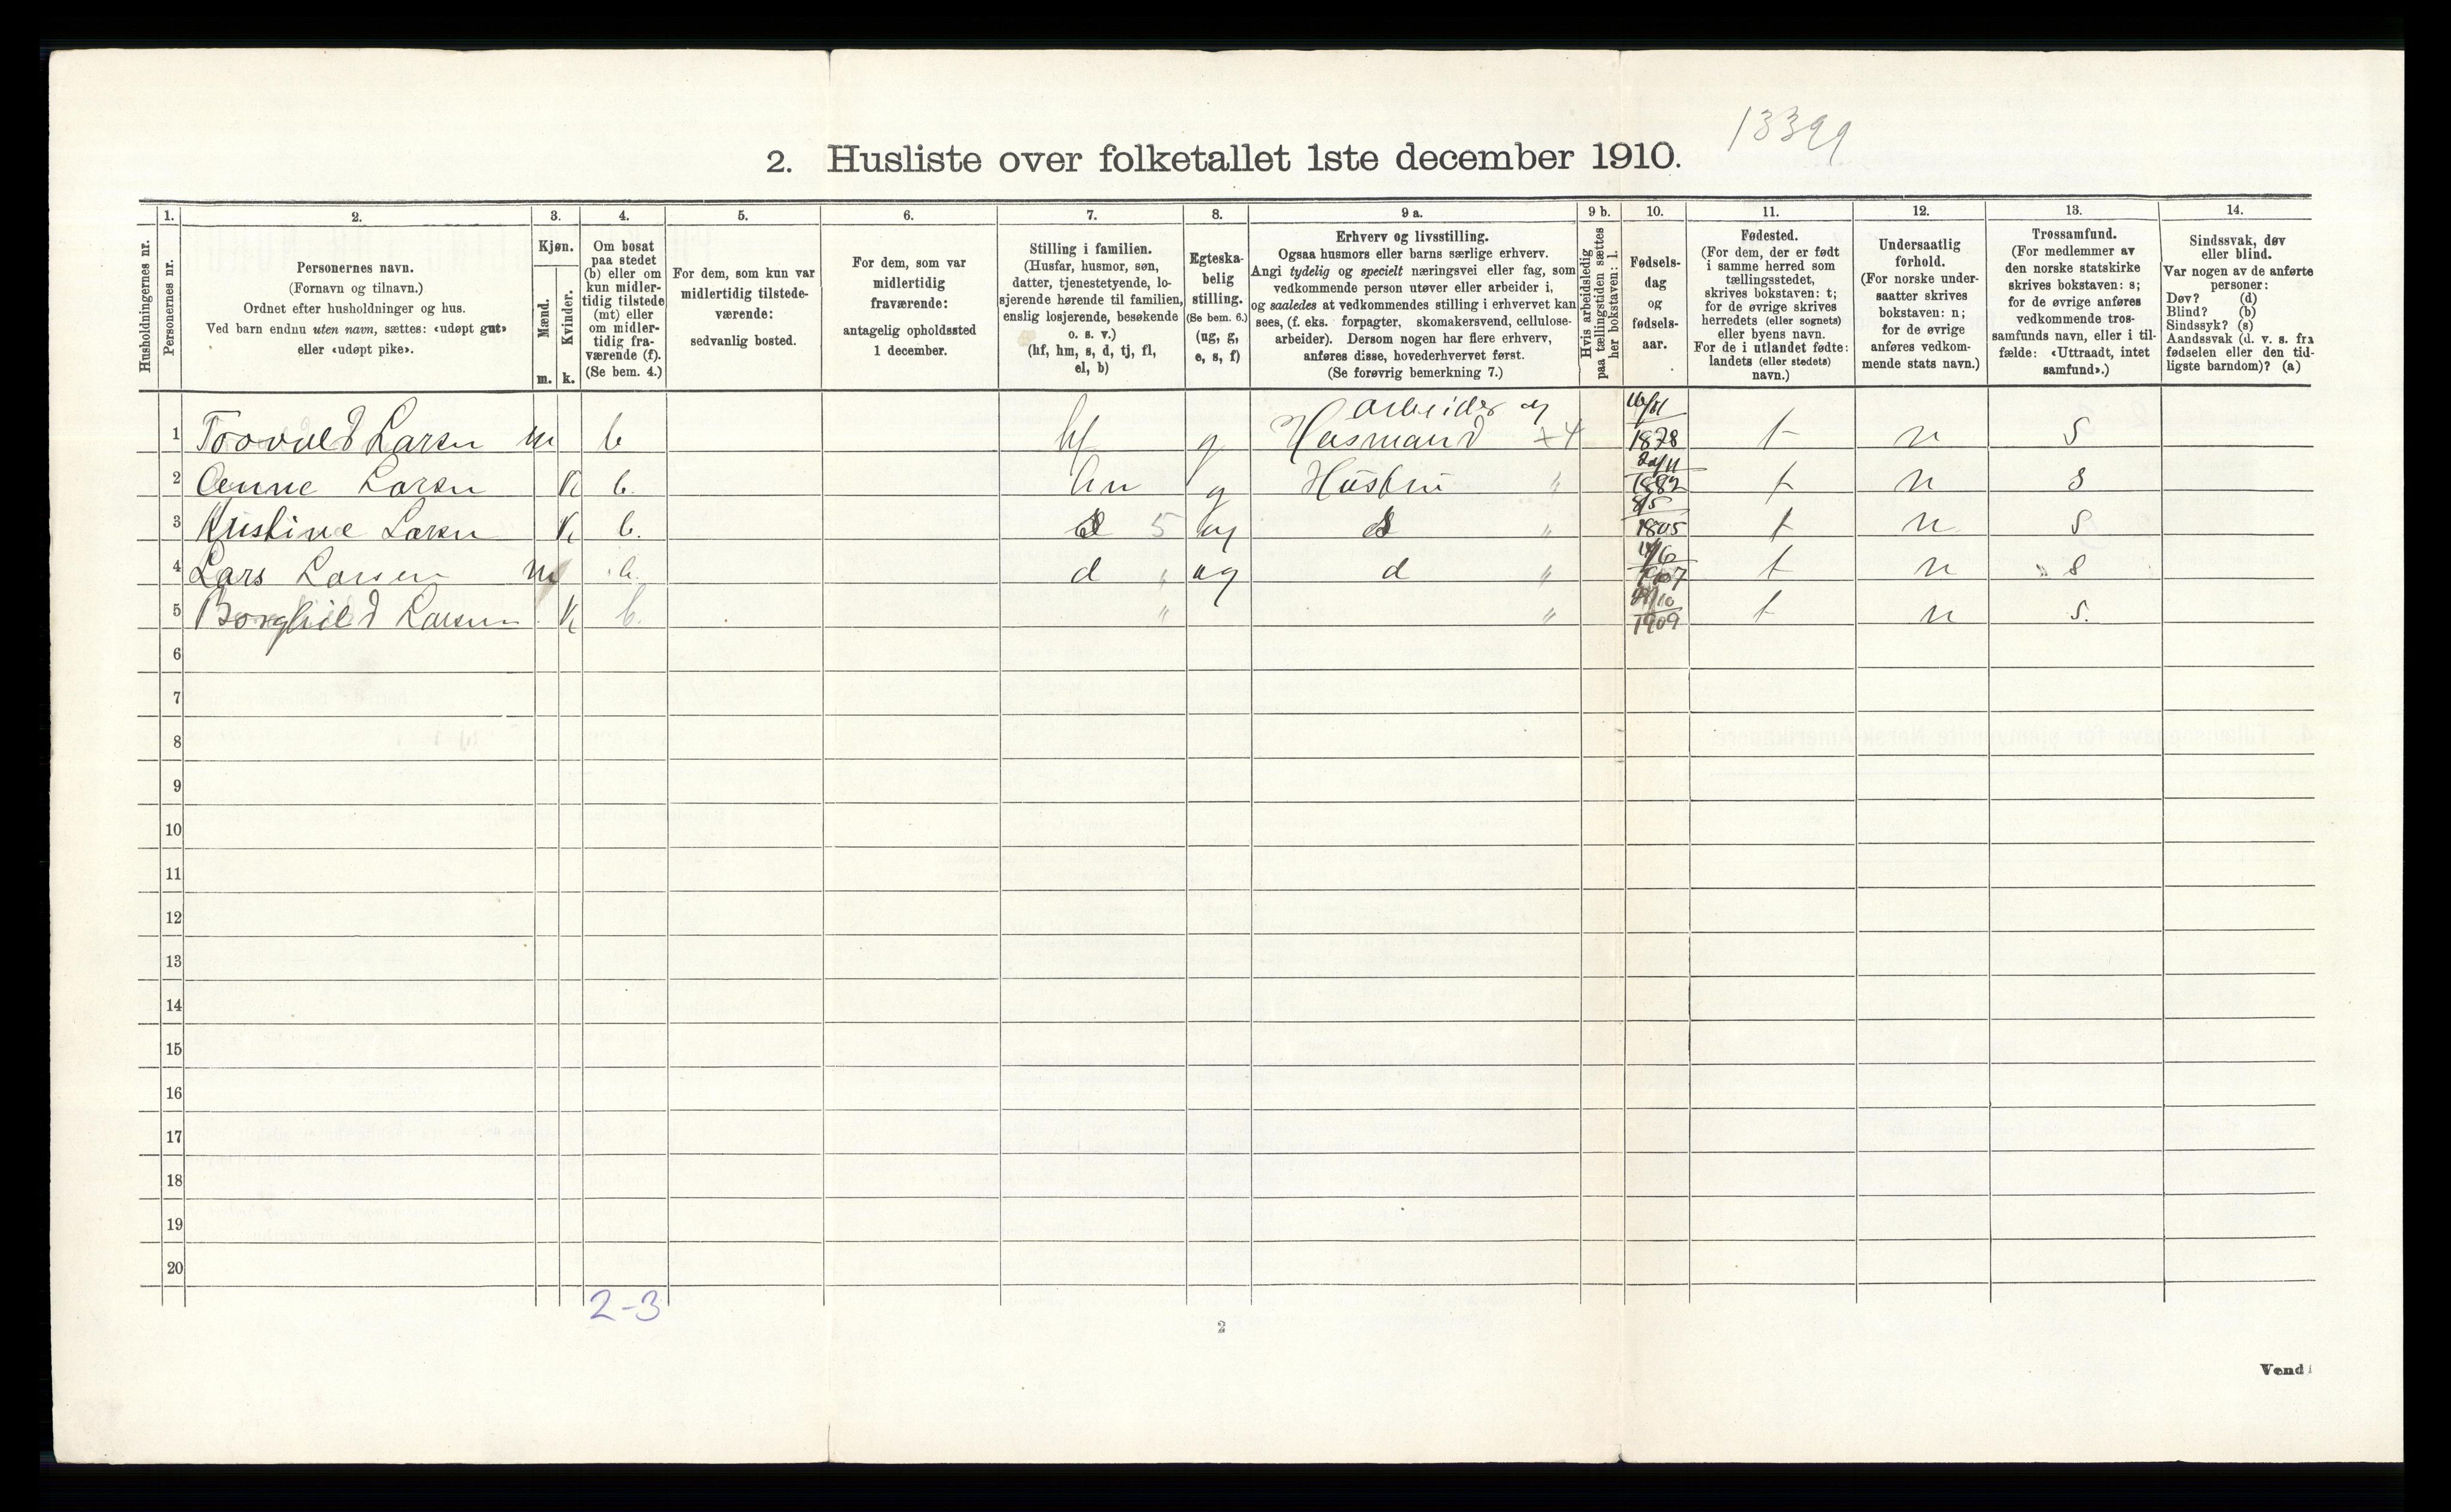 13399
2. Husliste over folketallet 1ste december 1910.
Husholdningernes nr.
1.
Personernes nr.
2.
Personernes navn.
(Fornavn og tilnavn.)
Ordnet efter husholdninger og hus.
Ved barn endnu uten navn, sættes: «udøpt gut»
eller «udøpt pike».
3.
Kjøn.
Mænd.
Kvinder.
m. k.
4.
Om bosat
paa stedet
(b) eller om
kun midler-
tidig tilstede
(mt) eller
om midler-
tidig fra-
værende (f).
(Se bem. 4.)
5.
For dem, som kun var
midlertidig tilstede-
værende:
sedvanlig bosted.
6.
For dem, som var
midlertidig
fraværende:
antagelig opholdssted
1 december.
7.
Stilling i familien.
(Husfar, husmor, søn,
datter, tjenestetyende, lo-
sjerende hørende til familien,
enslig losjerende, besøkende
o. s. v.)
(hf, hm, s, d, tj, fl,
el, b)
8.
Egteska-
belig
stilling.
(Se bem. 6.)
(ug, g,
e, s, f)
9 a.
Erhverv og livsstilling.
Ogsaa husmors eller barns særlige erhverv.
Angi tydelig og specielt næringsvei eller fag, som
vedkommende person utøver eller arbeider i,
og saaledes at vedkommendes stilling i erhvervet kan
sees, (f. eks. forpagter, skomakersvend, cellulose-
arbeider). Dersom nogen har flere erhverv,
anføres disse, hovederhvervet først.
(Se forøvrig bemerkning 7.)
9 b.
Hvis arbeidsledig
paa tællingstiden sættes
her bokstaven: l.
10.
Fødsels-
dag
og
fødsels-
aar.
11.
Fødested.
(For dem, der er født
i samme herred som
tællingsstedet,
skrives bokstaven: t;
for de øvrige skrives
herredets (eller sognets)
eller byens navn.
For de i utlandet fødte:
landets (eller stedets)
navn.)
12.
Undersaatlig
forhold.
(For norske under-
saatter skrives
bokstaven: n;
for de øvrige
anføres vedkom-
mende stats navn.)
13.
Trossamfund.
(For medlemmer av
den norske statskirke
skrives bokstaven: s;
for de øvrige anføres
vedkommende tros-
samfunds navn, eller i til-
fælde: «Uttraadt, intet
samfund».)
14.
Sindssvak, døv
eller blind.
Var nogen av de anførte
personer:
Døv? (d)
Blind? (b)
Sindssyk? (s)
Aandssvak (d. v. s. fra
fødselen eller den tid-
ligste barndom)? (a)
arbeider og
1 Toovald Larsen m b hf g Husmand +4 1878 t n S
2 Anne Larsen K b. g Hustru " 1882 t n S
3 Kristine Larsen K b. 5 ug " 8/5 1905 t n S
4 Lars Larsen m d " ug d " 1907 t n S
5 Borghild Larsen K b. " " 1909 t n S.
6
7
8
9
10
11
12
13
14
15
16
17
18
19
20
2-3
2
Vend